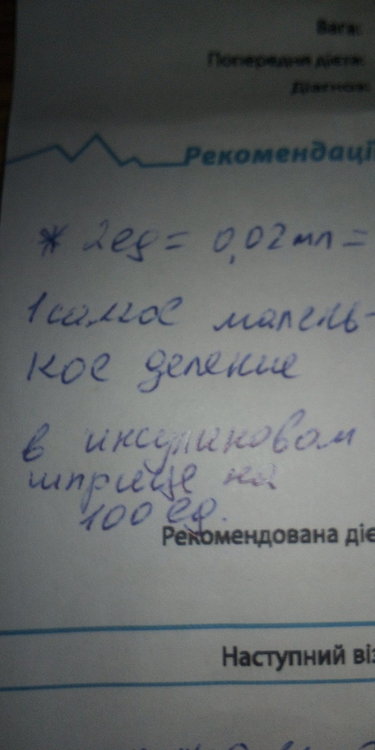 Вага:
Попередня дієта:
Діагноз:
Рекомендації
* 2ед = 0,02 мл =
1 самое малень-
кое деление
в инсулиновом
шприце на
100 ед.
Рекомендована діє
Наступний віз